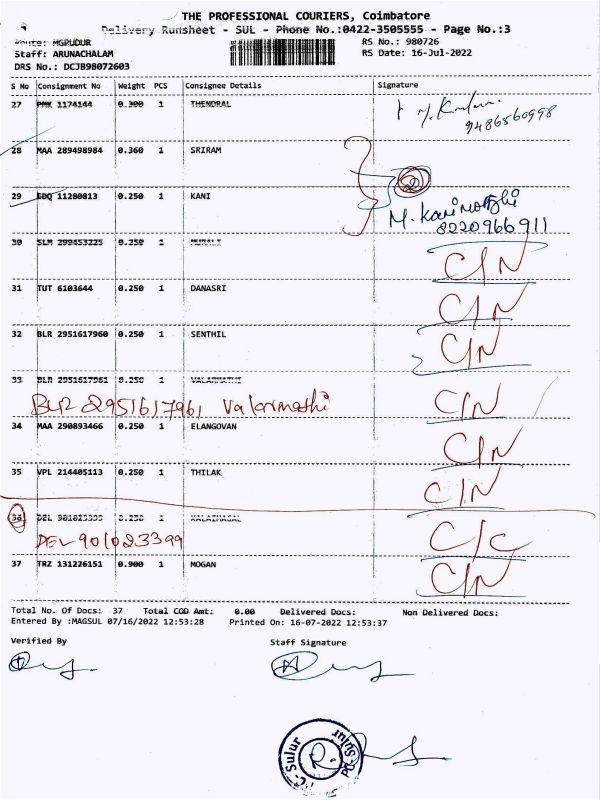 THE PROFESSIONAL COURIERS, Coimbatore
Delivery Runsheet - SUL - Phone No.:0422-3505555 - Page No.:3
Route: MGPUDUR RS No.: 980726
Staff: ARUNACHALAM RS Date: 16-Jul-2022
DRS No.: DCJB98072603
S No Consignment No Weight PCS Consignee Details Signature
27 PMK 1174144 0.300 1 THENDRAL
9486560998
28 MAA 289498984 0.360 1 SRIRAM
29 EDQ 11280813 0.250 1 KANI
M. Kanimozhi
8220966911
30 SLM 299453225 0.250 1 MURALI C/N
31 TUT 6103644 0.250 1 DANASRI C/N
32 BLR 2951617960 0.250 1 SENTHIL C/N
33 BLR 2951617961 0.250 1 VALARMATHI
BLR 2951617961 Valarmathi C/N
34 MAA 290893466 0.250 1 ELANGOVAN C/N
35 VPL 214405113 0.250 1 THILAK C/N
36 DEL 0.250 1 KALAIMAGAL
DEL 901023399 C/C
37 TRZ 131226151 0.900 1 MOGAN C/N
Total No. Of Docs: 37 Total COD Amt: 0.00 Delivered Docs: Non Delivered Docs:
Entered By :MAGSUL 07/16/2022 12:53:28 Printed On: 16-07-2022 12:53:37
Verified By Staff Signature
Sulur